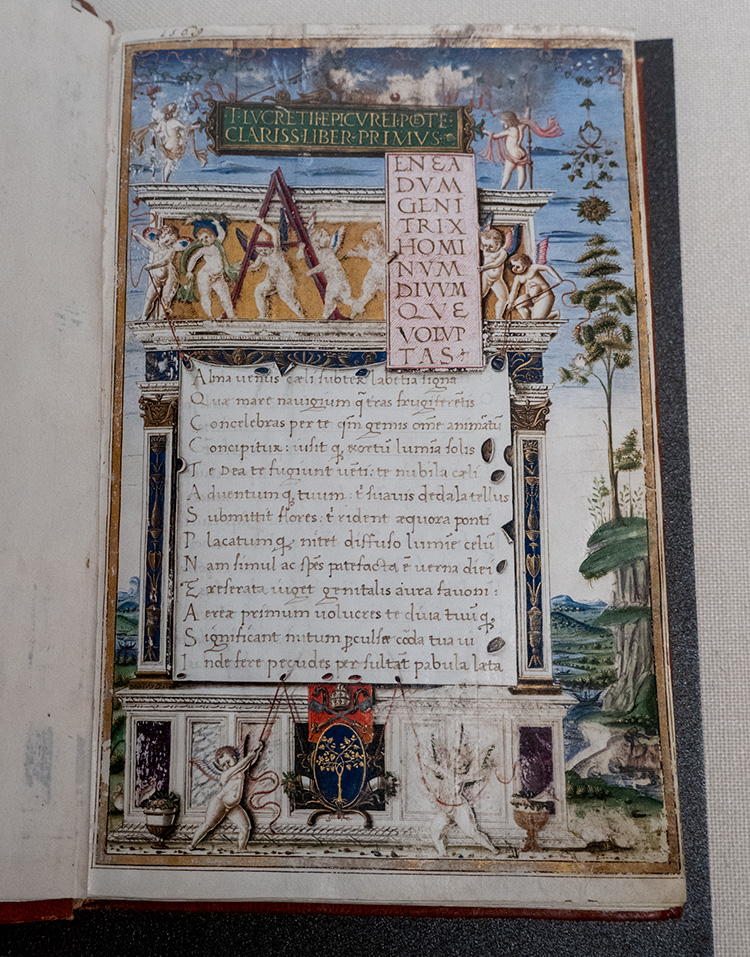 T·LVCRETII·EPICVREI·POTE·
CLARISS·LIBER·PRIMVS·
A
ENEA
DVM
GENI
TRIX
HOMI
NVM
DIVVM
QVE
VOLVP
TAS
Alma venus cæli subter labētia signa
Quæ mare navigium q̃ tras frugiferētis
Concelebras per te qm̃ genus ōme animātū
Concipitur: visit q̨ exortū lumīa solis
Te Dea te fugiunt vēti: te nubila cæli
Aduentum q̨ tuum: t' suavis dedala tellus
Submittit flores: t' rident æquora ponti
Placatum q̨ nitet diffuso lumīe celū
Nam simul ac spēs patefacta ē verna diei
Et reserata viget genitalis aura favoni:
Aereæ primum volucres te diva tuū q̨
Significant initum pculsæ cōda tua vi
Inde feræ pecudes per sultāt pabula læta